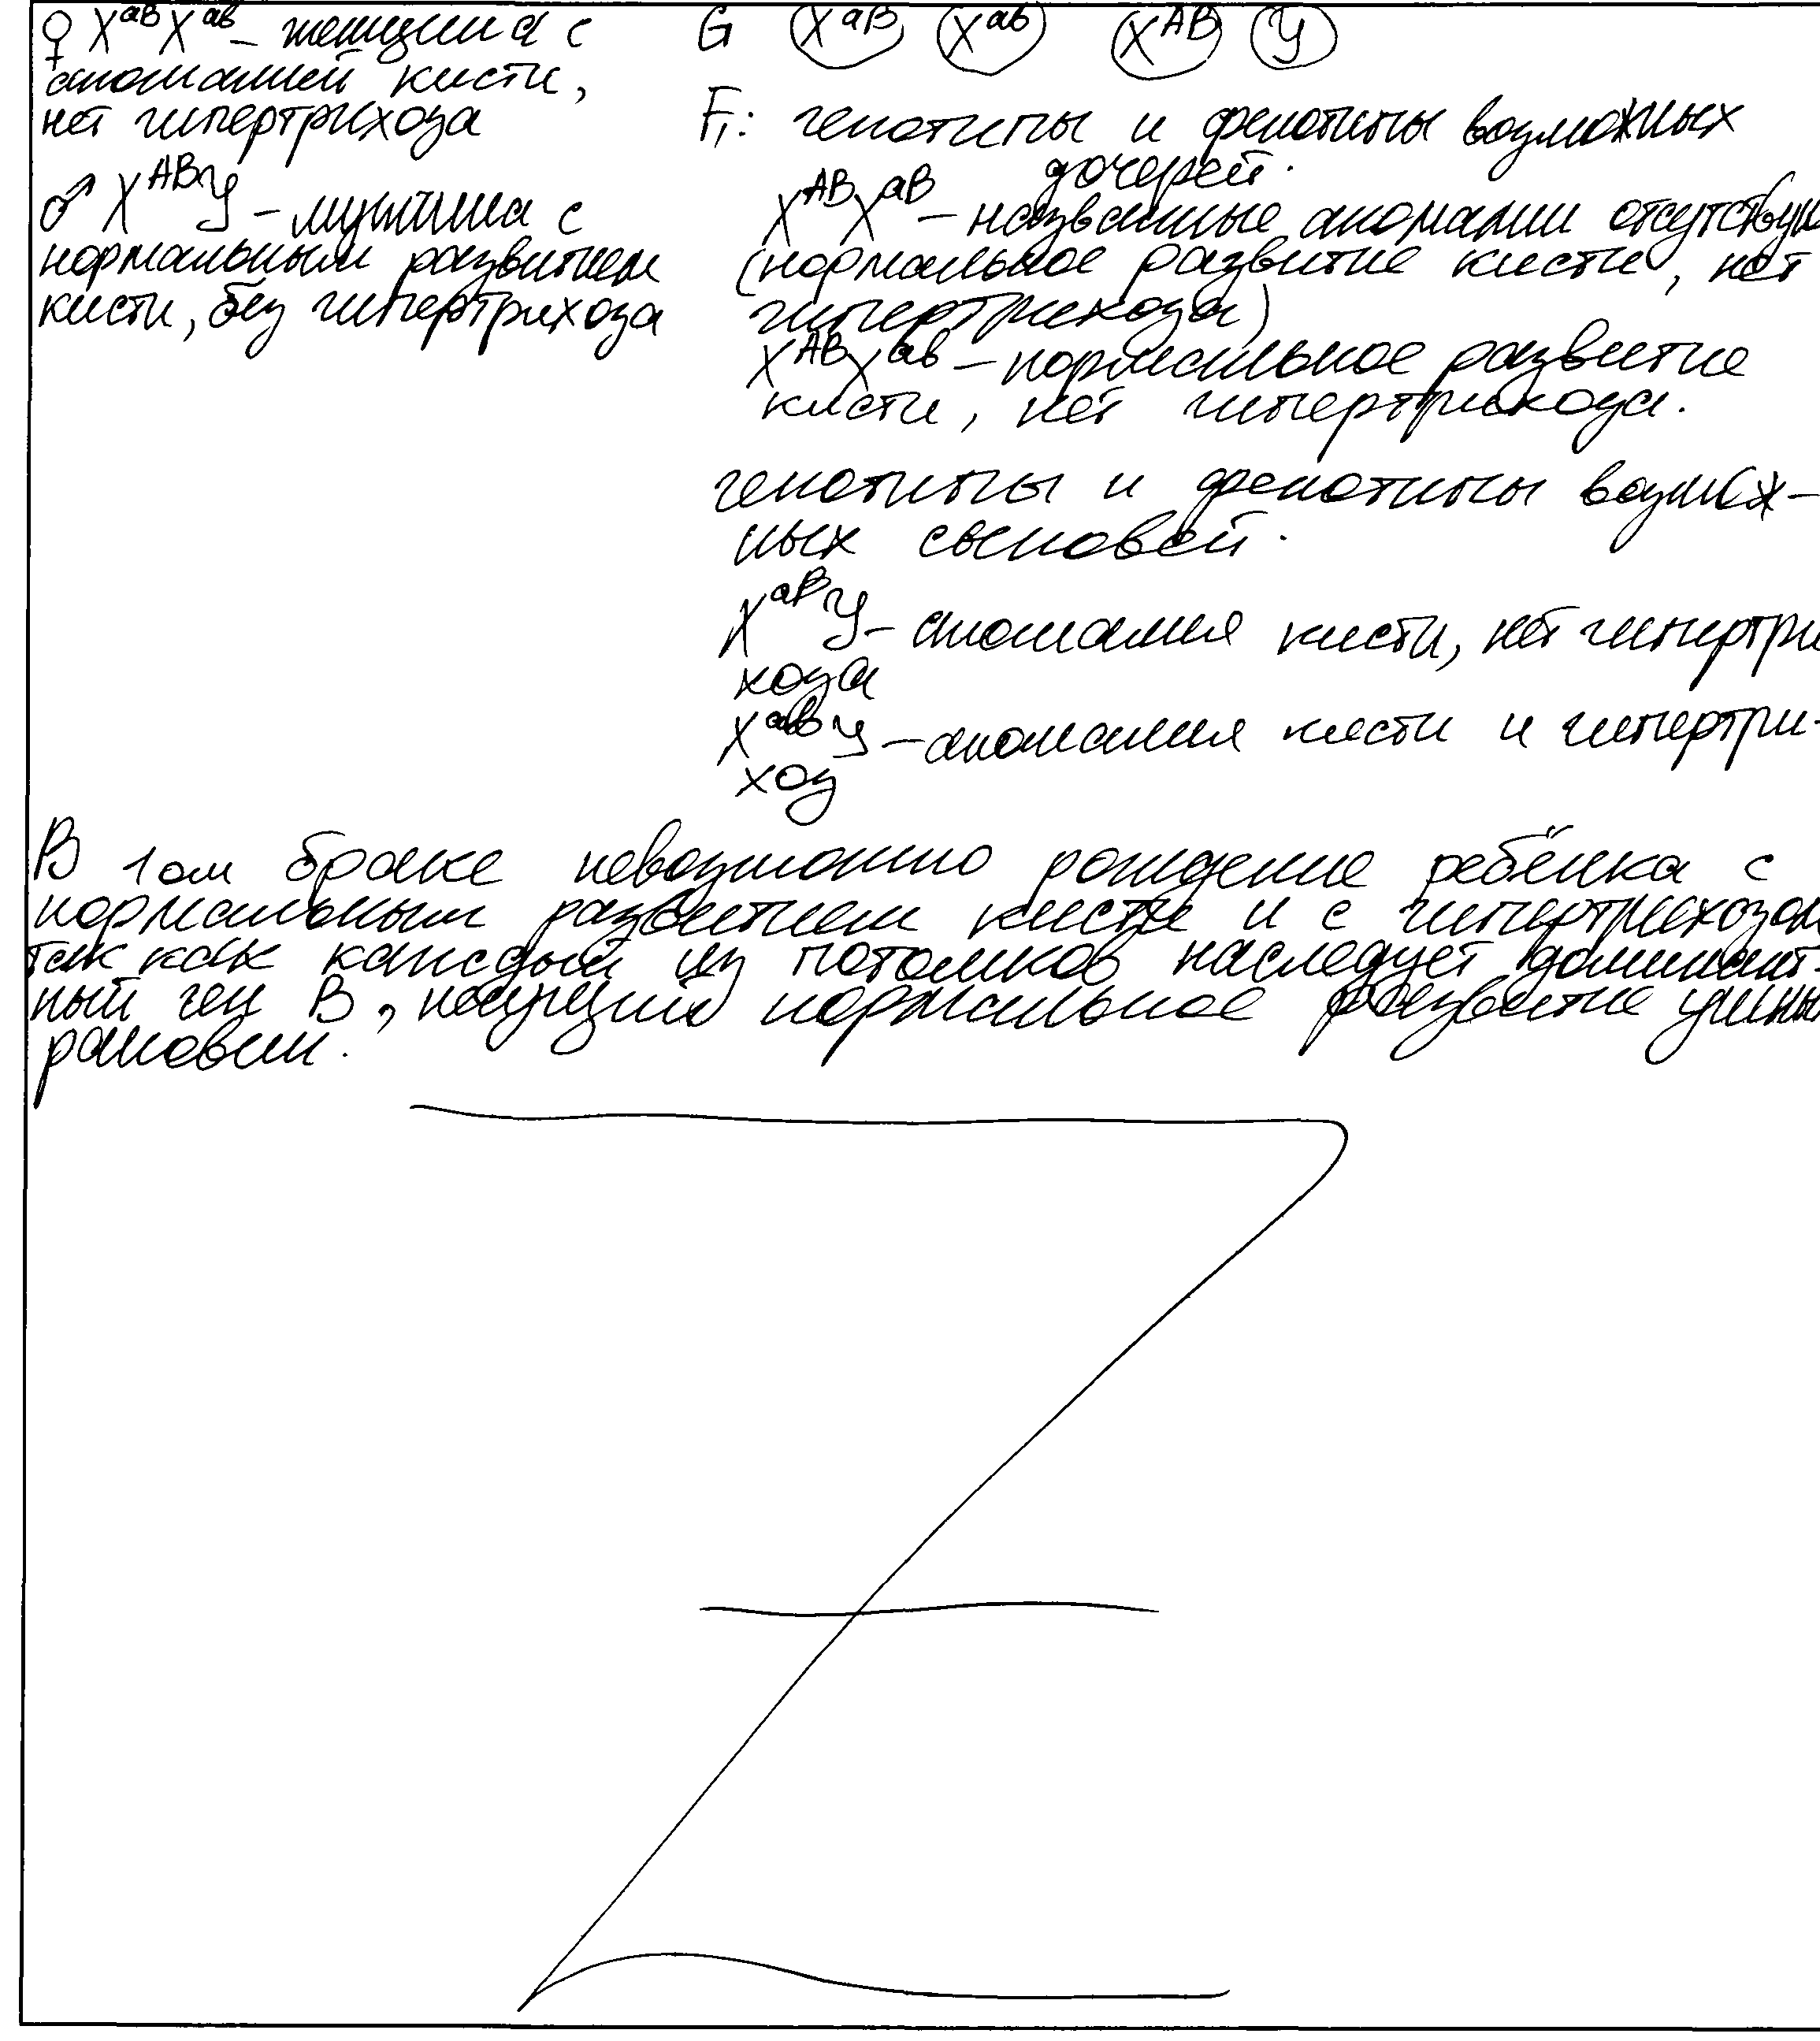 ♀ XᵃᴮXᵃᵇ – женщина с
аномалией кисти,
нет гипертрихоза
♂ XᴬᴮY – мужчина с
нормальным развитием
кисти, без гипертрихоза
G Xᵃᴮ Xᵃᵇ Xᴬᴮ Y
F₁: генотипы и фенотипы возможных
дочерей:
XᴬᴮXᵃᴮ – названные аномалии отсутствую
(нормальное развитие кисти, нет
гипертрихоза)
XᴬᴮXᵃᵇ – нормальное развитие
кисти, нет гипертрихоза.
генотипы и фенотипы возмож-
ных сыновей:
XᵃᴮY – аномалия кисти, нет гипертри
хоза
XᵃᵇY – аномалия кисти и гипертри-
хоз
В 1ом браке невозможно рождение ребёнка с
нормальным развитием кисти и с гипертрихозом
так как каждый из потомков наследует доминант-
ный ген В, несущий нормальное развитие ушных
раковин.